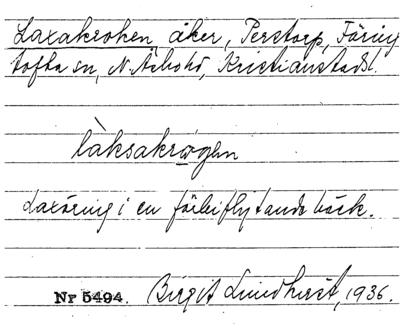 Laxakroken, åker, Perstorp, Färing
tofta sn, N. Åsbohd, Kristianstadsl.
làksakrogen
Laxöring i en förbiflytande bäck.
Nr 5494. Birgit Lundhvist, 1936.